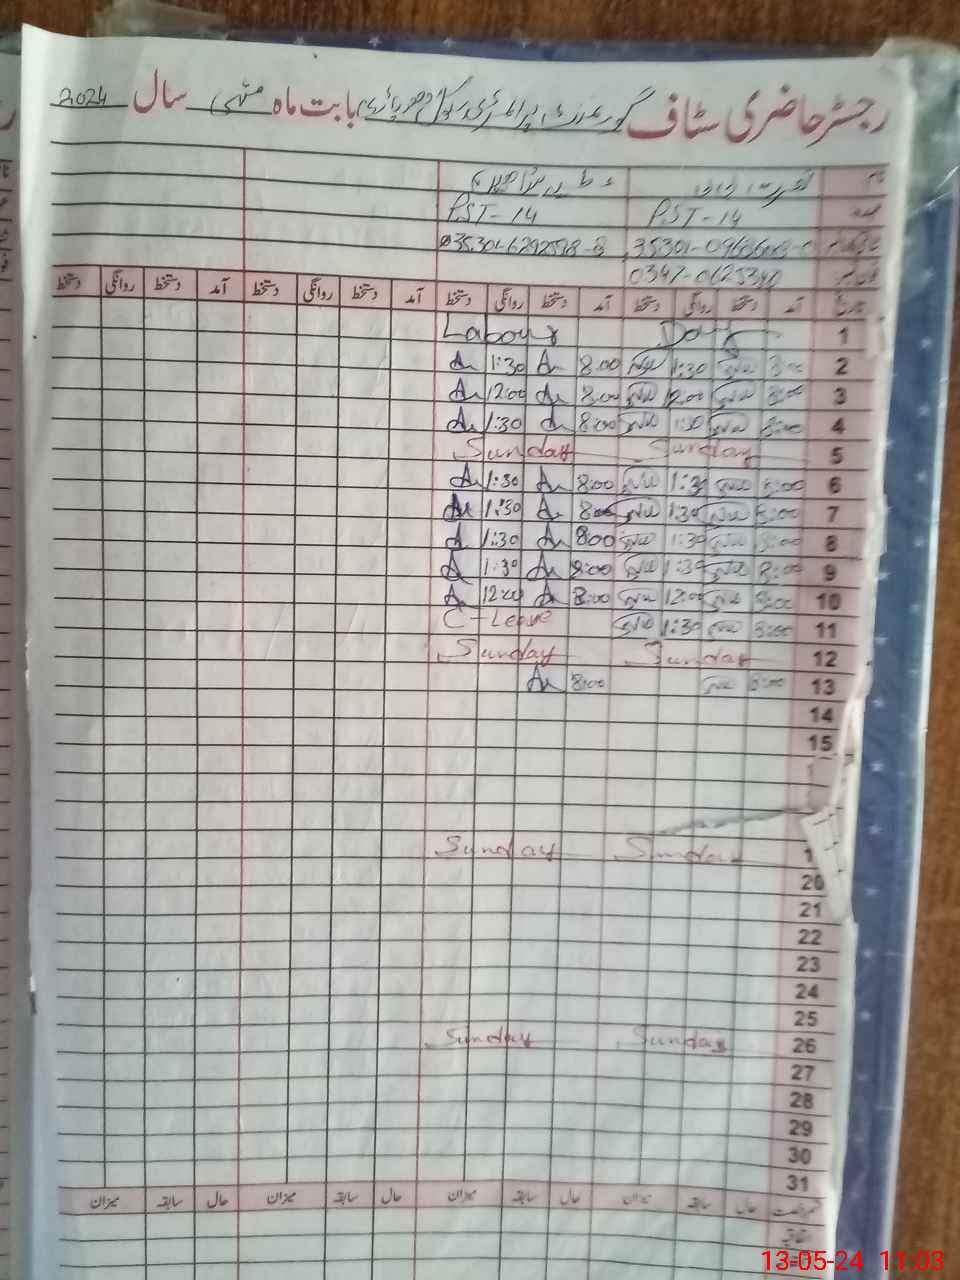 رجسٹر حاضری سٹاف گورنمنٹ پرائمری سکول بابت ماہ مئی سال 2024
نام
عہدہ PST-14 PST-14
35301-6292598-8
0347-0625390
تاریخ آمد دستخط روانگی دستخط آمد دستخط روانگی دستخط آمد دستخط روانگی دستخط آمد دستخط روانگی دستخط
1 Labour Day
2 8:00 1:30 8:00 1:30
3 8:00 12:00 8:00 12:00
4 8:00 1:30 8:00 1:30
5 Sunday Sunday
6 8:00 1:30 8:00 1:30
7 8:00 1:30 8:00 1:30
8 8:00 1:30 8:00 1:30
9 8:00 1:30 8:00 1:30
10 8:00 12:00 8:00 12:00
11 8:00 1:30 C-Leave
12 Sunday Sunday
13 8:00 8:00
14
15
1
1 Sunday Sunday
20
21
22
23
24
25
26 Sunday Sunday
27
28
29
30
31
حال سابقہ میزان حال سابقہ میزان حال سابقہ میزان حال سابقہ میزان
اتفاقیہ
13-05-24 11:03